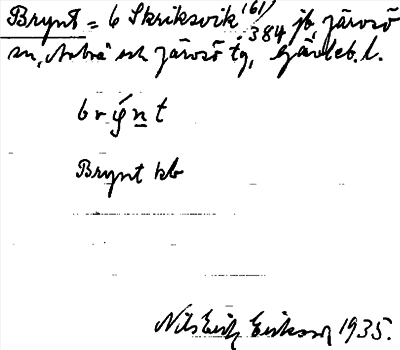 Brynt = 6 Skriksvik (61) 384 jb, Järvsö
sn, Norra och Järvsö tg, Gävleb. l.
brýnt
Brynt kb
Nils Erik Eriksson 1935.